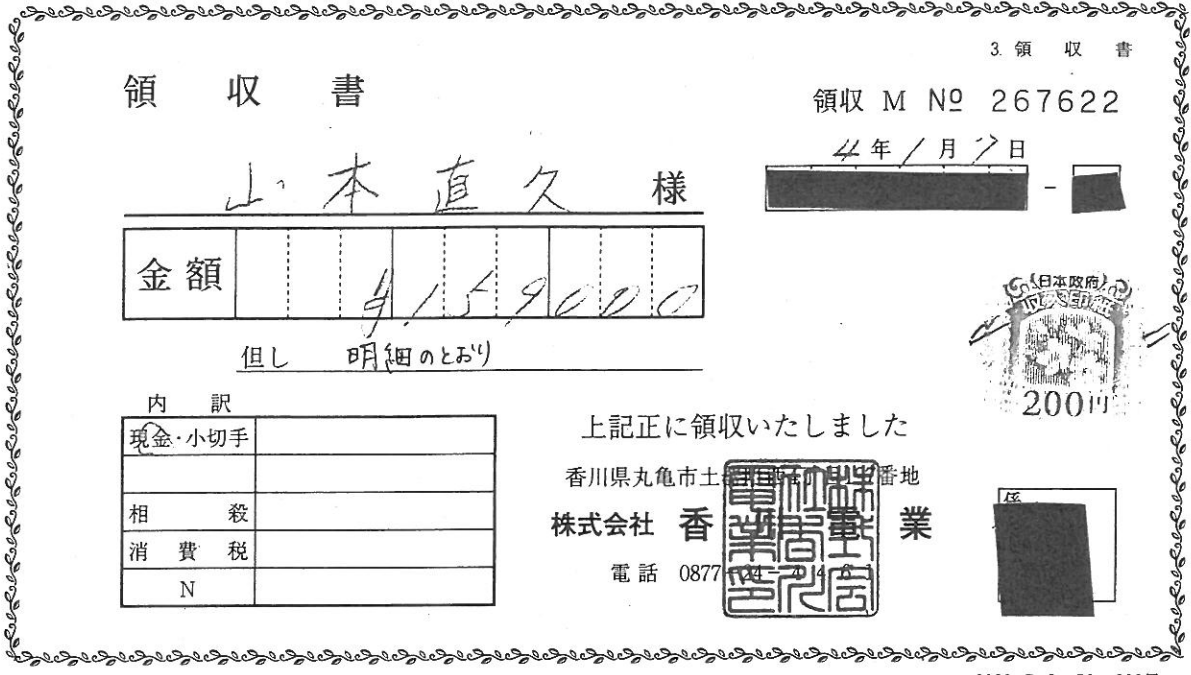 3. 領収書
領収書
領収 M № 267622
4年1月7日
山本直久 様
金額 ¥159000
但し 明細のとおり
日本政府
収入印紙
200円
内訳
現金・小切手
相殺
消費税
N
上記正に領収いたしました
香川県丸亀市土 番地
株式会社 香川電業
電話 0877-24-4461
係